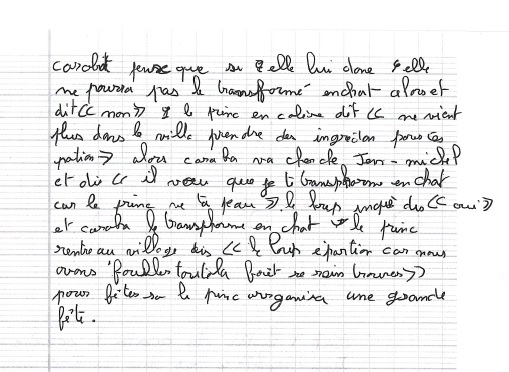 carobat pense que si elle lui done elle
ne pourra pas le transformé enchat alors et
dit << non >> le princ en colère dit << ne vient
plus dans le ville prendre des ingrédian pour tes
potion >> alors caraba va cherche Jen-michel
et dis << il veu que je ti transpharme en chat
car le princ ne ta peau >> le loup inqué dis << oui >>
et caraba le transpforme en chat le princ
rentre au village dis << le loup é partion car nous
avons fouillés toutola forêt se rain trouver >>
pour fêter sa le princ urrganisa une grande
fêti.